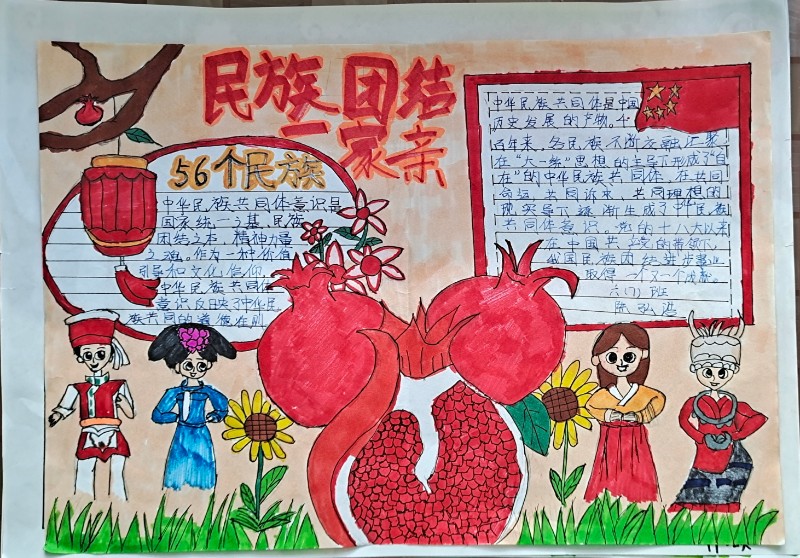 民族团结
一家亲
56个民族
中华民族共同体意识是
国家统一之基、民族
团结之本、精神力量
之魂。作为一种价值
引导和文化信仰,
中华民族共同体
意识反映了中华民
族共同的道德准则
中华民族共同体是中国
历史发展的产物。千
百年来,各民族不断交融汇聚
在"大一统"思想的主导下形成了"自
在"的中华民族共同体,在共同
命运、共同诉求、共同理想的
现实导下逐渐生成了中华民族
共同体意识。党的十八大以来
在中国共产党的带领下,
我国民族团结进步事业
取得一个又一个成就
六(7)班
陈弘